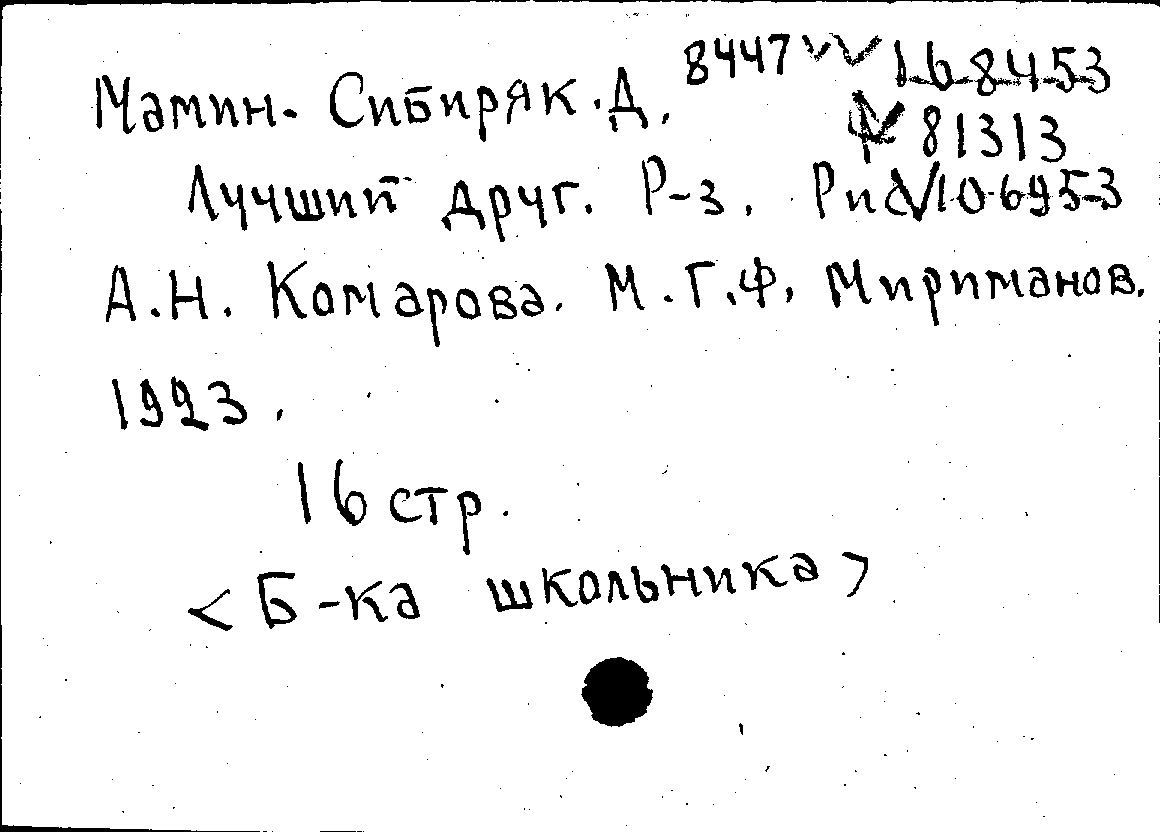 Мамин-Сибиряк. Д. 8447 168453
81313
Лучший друг. Р-з. Рис 106953
А.Н. Комарова. М. Г.Ф. Мириманов.
1923.
16 стр.
<Б-ка школьника>